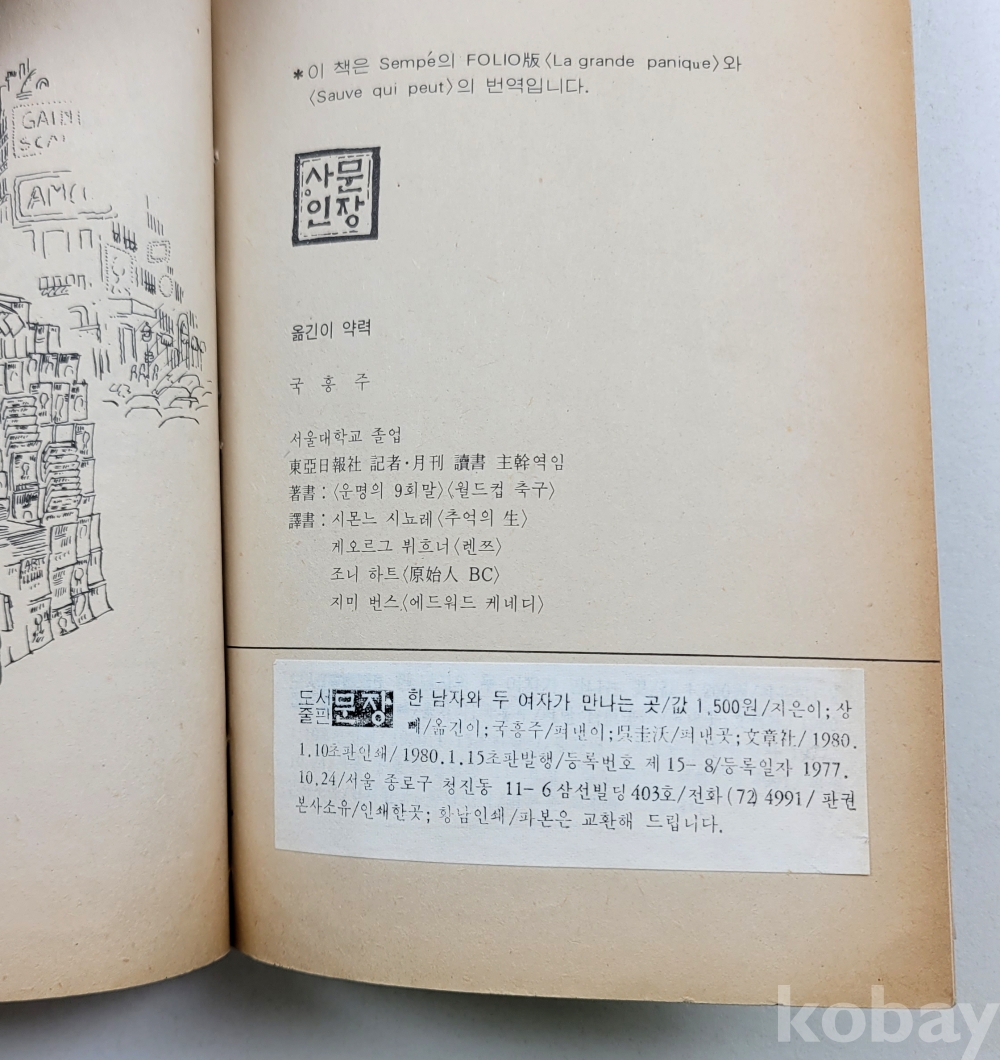 GAIN
SCA
AMC
*이 책은 Sempé의 FOLIO版〈La grande panique〉와
〈Sauve qui peut〉의 번역입니다.
사문
인장
옮긴이 약력
국 흥 주
서울대학교 졸업
東亞日報社 記者·月刊 讀書 主幹역임
著書:〈운명의 9회말〉〈월드컵 축구〉
譯書: 시몬느 시뇨레〈추억의 生〉
게오르그 뷔흐너〈렌쯔〉
조니 하트〈原始人 BC〉
지미 번스〈에드워드 케네디〉
도서출판 문장 한 남자와 두 여자가 만나는 곳/값 1,500원/지은이; 상
뻬/옮긴이; 국흥주/펴낸이; 吳圭沃/펴낸곳; 文章社/ 1980.
1.10초판인쇄/ 1980.1.15초판발행/등록번호 제 15-8/등록일자 1977.
10.24/서울 종로구 청진동 11-6 삼선빌딩 403호/전화 (72) 4991/ 판권
본사소유/인쇄한곳; 황남인쇄/파본은 교환해 드립니다.
kobay